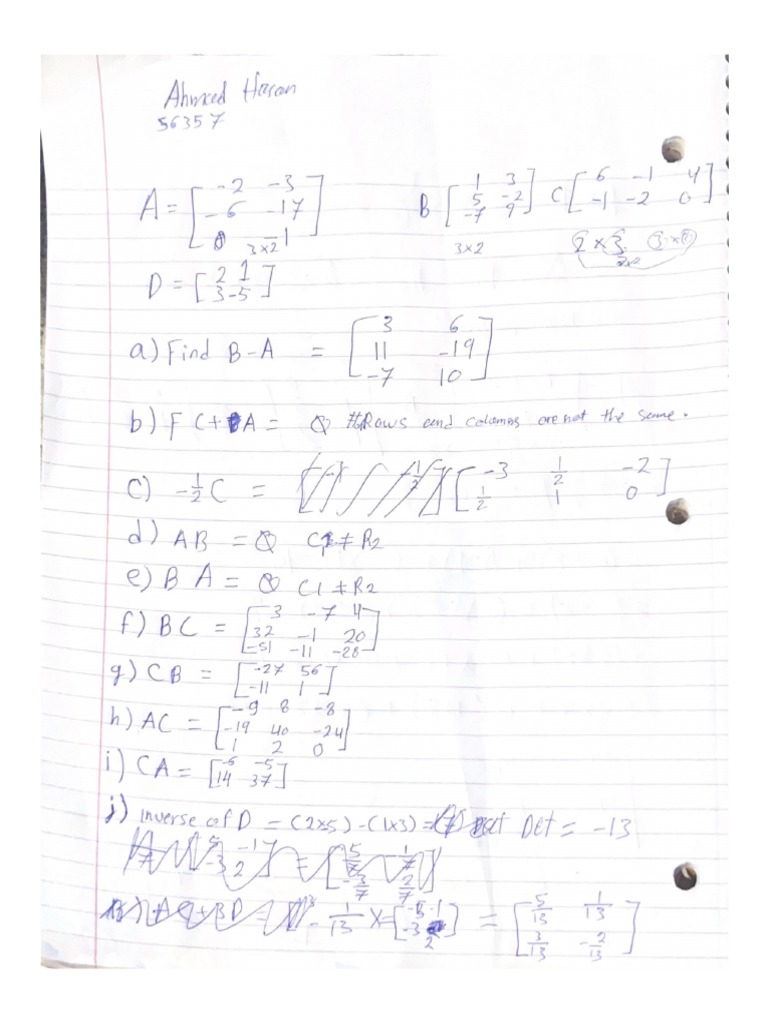 Ahmed Hasan
56357
A = [ -2 -3
-6 -17
0 -1 ] 3×2
B [ 1 3
5 -2
-7 9 ] 3×2
C [ 6 -1 4
-1 -2 0 ] 2×3
D = [ 2 1
3 -5 ]
a) Find B-A = [ 3 6
11 -19
-7 10 ]
b) F C+A = Rows and columns are not the same.
c) -1/2 C = [ -3 1/2 -2
1/2 1 0 ]
d) AB = C1 ≠ R2
e) B A = C1 ≠ R2
f) BC = [ 3 -7 4
32 -1 20
-51 -11 -28 ]
g) CB = [ -27 56
-11 1 ]
h) AC = [ -9 8 -8
-19 40 -24
1 2 0 ]
i) CA = [ -6 -5
14 37 ]
j) inverse of D = (2×5) - (1×3) = Det = -13
-1/13 × [ -5 -1
-3 2 ] = [ 5/13 1/13
3/13 -2/13 ]